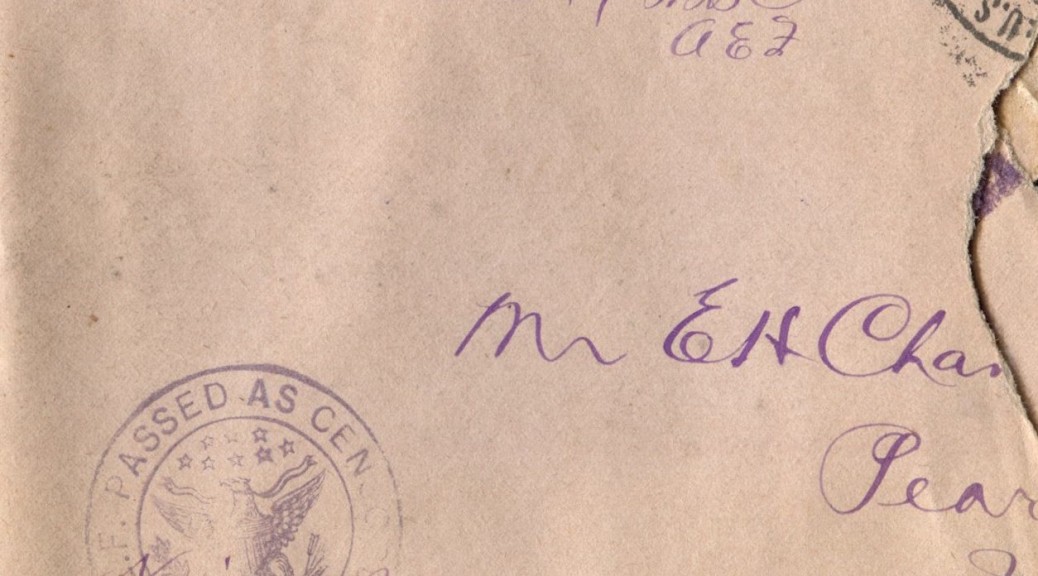 AEF
U.S.
Mr EH Cha
Pear
PASSED AS CEN